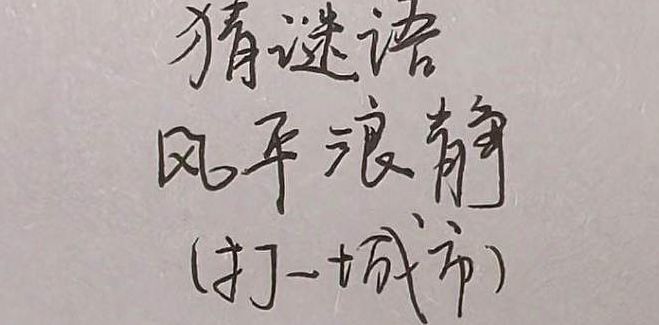 猜谜语
风平浪静
(打一城市)